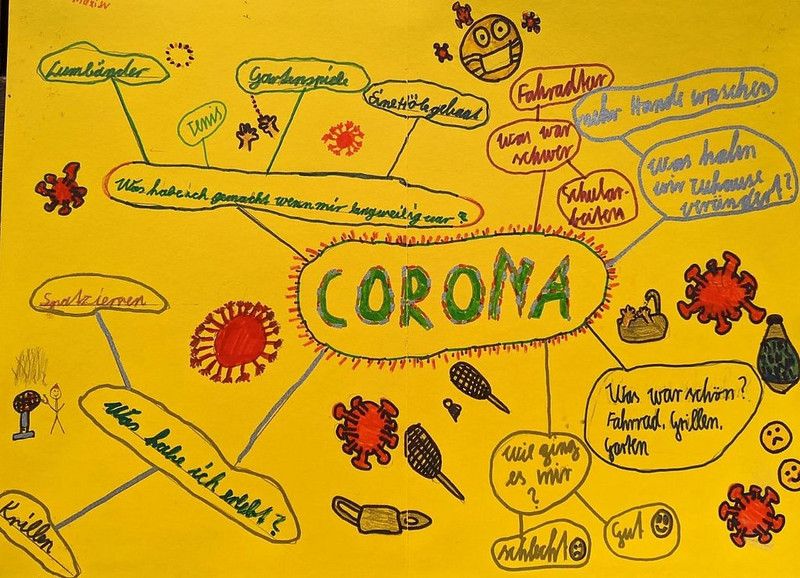 Lumbänder
Tenis
Gartenspiele
Eine Höle gebaut
Was habe ich gemacht wenn mir langweilig war?
Fahradtur
Was war
schwer
Schular-
beiten
Hände waschen
Was habn
wir Zuhause
verändert?
CORONA
Spatziernen
Was habe ich erlebt?
Krillen
Was war schön?
Fahrrad, Grillen,
Garten
Wie ging
es mir
?
schlecht
Gut